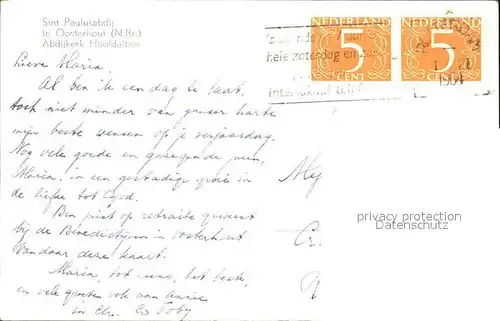 Sint Paulusabdij
te Oosterhout (N.Br.)
Abdijkerk Hoofdaltaar
NEDERLAND
5
CENT
NEDERLAND
5
CENT
hele zaterdag en zon
1964
Lieve Maria
Al ben ik een dag te laat.
toch niet minder van ganser harte
mijn beste wensen op je verjaardag.
Nog vele goede en gezegende jaren,
Maria, in een gestadige groei in
de liefde tot God.
Ben juist op retraite geweest
bij de Benedictijnen in Oosterhout
Vandaar deze kaart.
Maria, tot ziens, het beste,
en vele groeten ook aan Annie
in Chr.
Mej
Cr.
privacy protection
Datenschutz